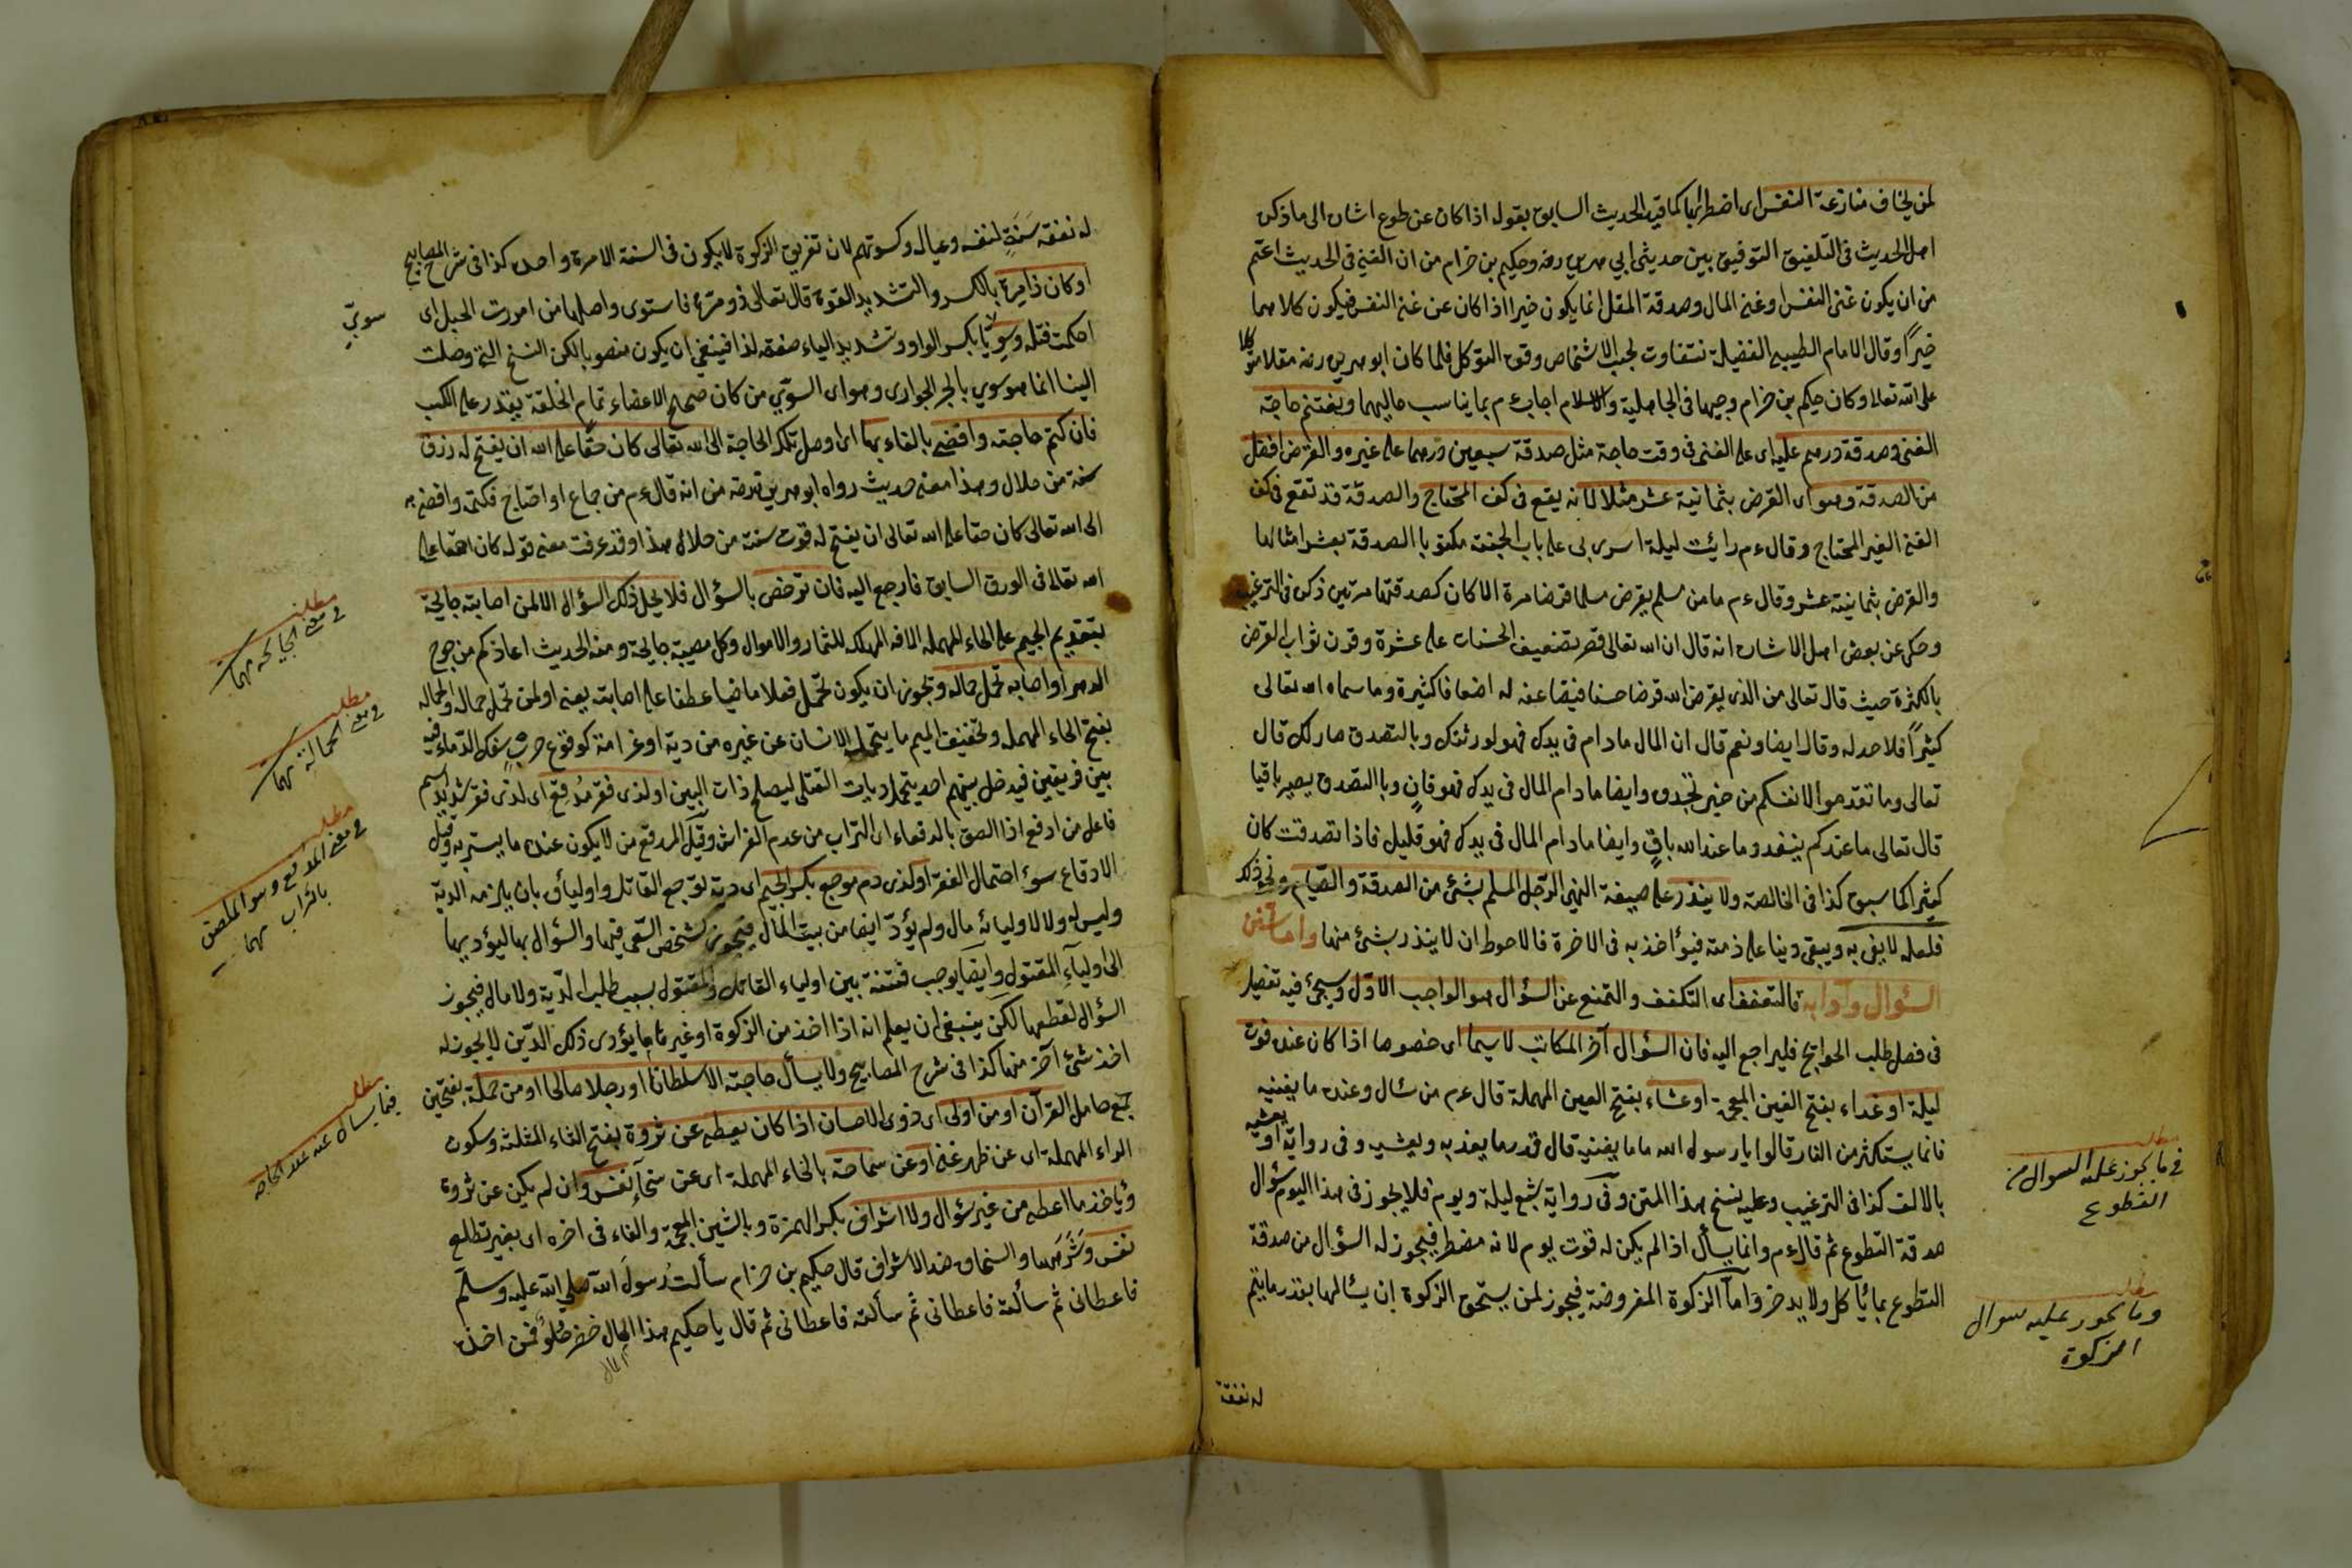 لمن يخاف منازعة النفس اى اضطرابها كما قيد الحديث السابق بقوله اذا كان عن طوع اشار الى ما ذكره
اهل الحديث فى التلفيق التوفيق بين حديثى ابى هريرة رضه وحكيم بن حزام من ان الغنى فى الحديث اعم
من ان يكون غنى النفس او غنى المال وصدقة المقل انما يكون خيرا اذا كان عن غنى النفس فيكون كلاهما
خيرًا وقال الامام الطيبى الفضيلة تتفاوت بحسب الاشخاص وقوة التوكل فلما كان ابو هريرة رضه مقلا متوكلا
على الله تعالى وكان حكيم بن حزام وجيها فى الجاهلية والاسلام اجاب ءم بما يناسب حاليهما ويغتنم حاجة
الغنى وصدقة درهم عليه اى على الغنى فى وقت حاجة مثل صدقة سبعين درهما على غيره والقرض افضل
من الصدقة وهو اى القرض بثمانية عشر مثلا لانه يقع فى كف المحتاج والصدقة قد تقع فى كف
الغنى الغير المحتاج وقال ءم رايت ليلة اسرى بى على باب الجنة مكتوبا الصدقة بعشر امثالها
والقرض بثمانية عشر وقال ءم ما من مسلم يقرض مسلما قرضا مرة الا كان كصدقتها مرتين ذكره فى الترغيب
وحكى عن بعض اهل الاشارة انه قال ان الله تعالى قصر تضعيف الحسنات على عشرة وقرن ثواب القرض
بالكثرة حيث قال تعالى من الذى يقرض الله قرضا حسنا فيضاعفه له اضعافا كثيرة وما سماه الله تعالى
كثيرًا فلا حد له وقال ايضا ونعم قال ان المال ما دام فى يدك فهو لورثتك وبالتصدق صار لك قال
تعالى وما تقدموا لانفسكم من خير تجدوه وايضا ما دام المال فى يدك فهو فانٍ وبالتصدق يصير باقيا
قال تعالى ما عندكم ينفد وما عند الله باقٍ وايضا ما دام المال فى يدك فهو قليل فاذا تصدقت كان
كثيرا كما سبق كذا فى الخالصة ولا ينذر على صيغة النهى الرجل المسلم بشئ من الصدقة والصيام ونحو ذلك
فلعله لا يفى به ويبقى دينا على ذمته فيؤاخذ به فى الاخرة فالاحوط ان لا ينذر بشئ منها واما سنن
السؤال وآدابه فالتعفف اى التكفف والتمنع عن السؤال هو الواجب الاول وسيجئ فيه تفصيل
فى فصل طلب الحوائج فليراجع اليه فان السؤال آخر المكاسب لا سيما اى خصوصا اذا كان عنده قوت
ليلة او غداء بفتح الغين المعجمة او عشاء بفتح العين المهملة قال ءم من سئال وعنده ما يغنيه
فانما يستكثر من النار قالوا يا رسول الله ما ما يغنيه قال قدر ما يغذيه ويعشيه وفى رواية او يعشيه
بالالف كذا فى الترغيب وعليه نسخ هذا المتن وفى رواية شبع ليلة ويوم فلا يجوز فى هذا اليوم سؤال
صدقة التطوع ثم قال ءم وانما يسأل اذا لم يكن له قوت يوم لانه مضطر فيجوز له السؤال من صدقة
التطوع بما يأكل ولا يدخر واما الزكوة المفروضة فيجوز لمن يستحق الزكوة ان يسئالها بقدر ما يتم
له نفقة
مطلب
فى ما يجوز عليه السوال من
التطوع
مطلب
وما يجوز عليه سوال
الزكوة
له نفقة سَنَةٍ لنفسه وعياله وكسوتهم لان تفريق الزكوة لا يكون فى السنة الا مرة واحدة كذا فى شرح المصابيح
او كان ذا مرة بالكسر والتشديد القوة قال تعالى ذو مرة فاستوى واصلها من امررت الحبل اى
احكمت فتله وسويًّا بكسر الواو وتشديد الياء صفة لذا فينبغى ان يكون منصوبا لكن النسخ التى وصلت
الينا انما هو سوي بالجر الجوارى وهو اى السوّي من كان صحيح الاعضاء تمام الخلقة يقدر على الكسب
فان كتم حاجته وافضى بالفاء بها اى اوصل تلك الحاجة الى الله تعالى كان حقًا على الله ان يفتح له رزق
سنة من حلال وهذا معنى حديث رواه ابو هريرة رضه من انه قال ءم من جاع او احتاج فكتمه وافضى به
الى الله تعالى كان حقا على الله تعالى ان يفتح له قوت سنة من حلال هذا وقد عرفت معنى قوله كان حقا على
الله تعالى فى الورق السابق فارجع اليه فان ترخص بالسؤال فلا يحل ذلك السؤال الا لمن اصابته جايحة
بتقديم الجيم على الحاء المهملة الافة المهلكة للثمار والاموال وكل مصيبة جايحة ومنه الحديث اعاذكم من جوح
الدهر او اصابه تحمل حمالة ويجوز ان يكون تحمل فعلا ماضيا عطفا على اصابته يعنى او لمن تحمل حمالة والحمالة
بفتح الحاء المهملة وتخفيف الميم ما يتحمله الانسان عن غيره من دية او غرامة كوقوع حربٍ سفك الدماء فيه
بين فريقين فيدخل بينهم احد يتحمل ديات القتلى ليصلح ذات البين او لذى فقر مُدقِع اى لذى فقر شديد اسم
فاعل من ادقع اذا الصق بالدقعاء اى التراب من عدم الفراش وقيل المدقع من لا يكون عنده ما يستر به وقيل
الادقاع سوء احتمال الفقر او لذى دم موجع بكسر الجيم اى دية توجع القاتل واوليائه بان يلزمه الدية
وليس له ولا لاوليائه مال ولم يؤدّ ايضا من بيت المال فيجوز لشخص السعى فيها والسؤال بها ليؤديها
الى اولياءِ المقتول وايضا يوجب فتنة بين اولياء القاتل والمقتول بسبب طلب الدية ولا مال فيجوز
السؤال لقطعها لكن ينبغى ان يعلم انه اذا اخذ من الزكوة او غيرها ما يؤدى ذلك الدين لا يجوز له
اخذ شئ آخر منها كذا فى شرح المصابيح ولا يسأل حاجته الا سلطانا او رجلا صالحا او من حملة بفتحتين
جمع حامل القرآن او من اولى اى ذوى الاحسان اذا كان يعطيه عن ثروة بفتح الثاء المثلثة وسكون
الراء المهملة اى عن ظهر غنى او عن سماحة بالحاء المهملة اى عن سخآءِ نفس وان لم يكن عن ثروة
ويأخذ ما اعطى من غير سؤال ولا اشراف بكسر الهمزة وبالشين المعجمة والفاء فى اخره اى بغير تطلع
نفس وشَرَهها والسخاوة ضد الاشراف قال حكيم بن حزام سألت رسول الله صلى الله عليه وسلم
فاعطانى ثم سألته فاعطانى ثم سألته فاعطانى ثم قال يا حكيم هذا المال خضر حُلوٌ فمن اخذه
المال
سويّ
مطلب
فى معنى الجايحة مهما
مطلب
فى معنى الحمالة مهما
مطلب
فى معنى المدقع وهو الملصق
بالتراب مهما
مطلب
فيما يسال عنه عند الحاجة